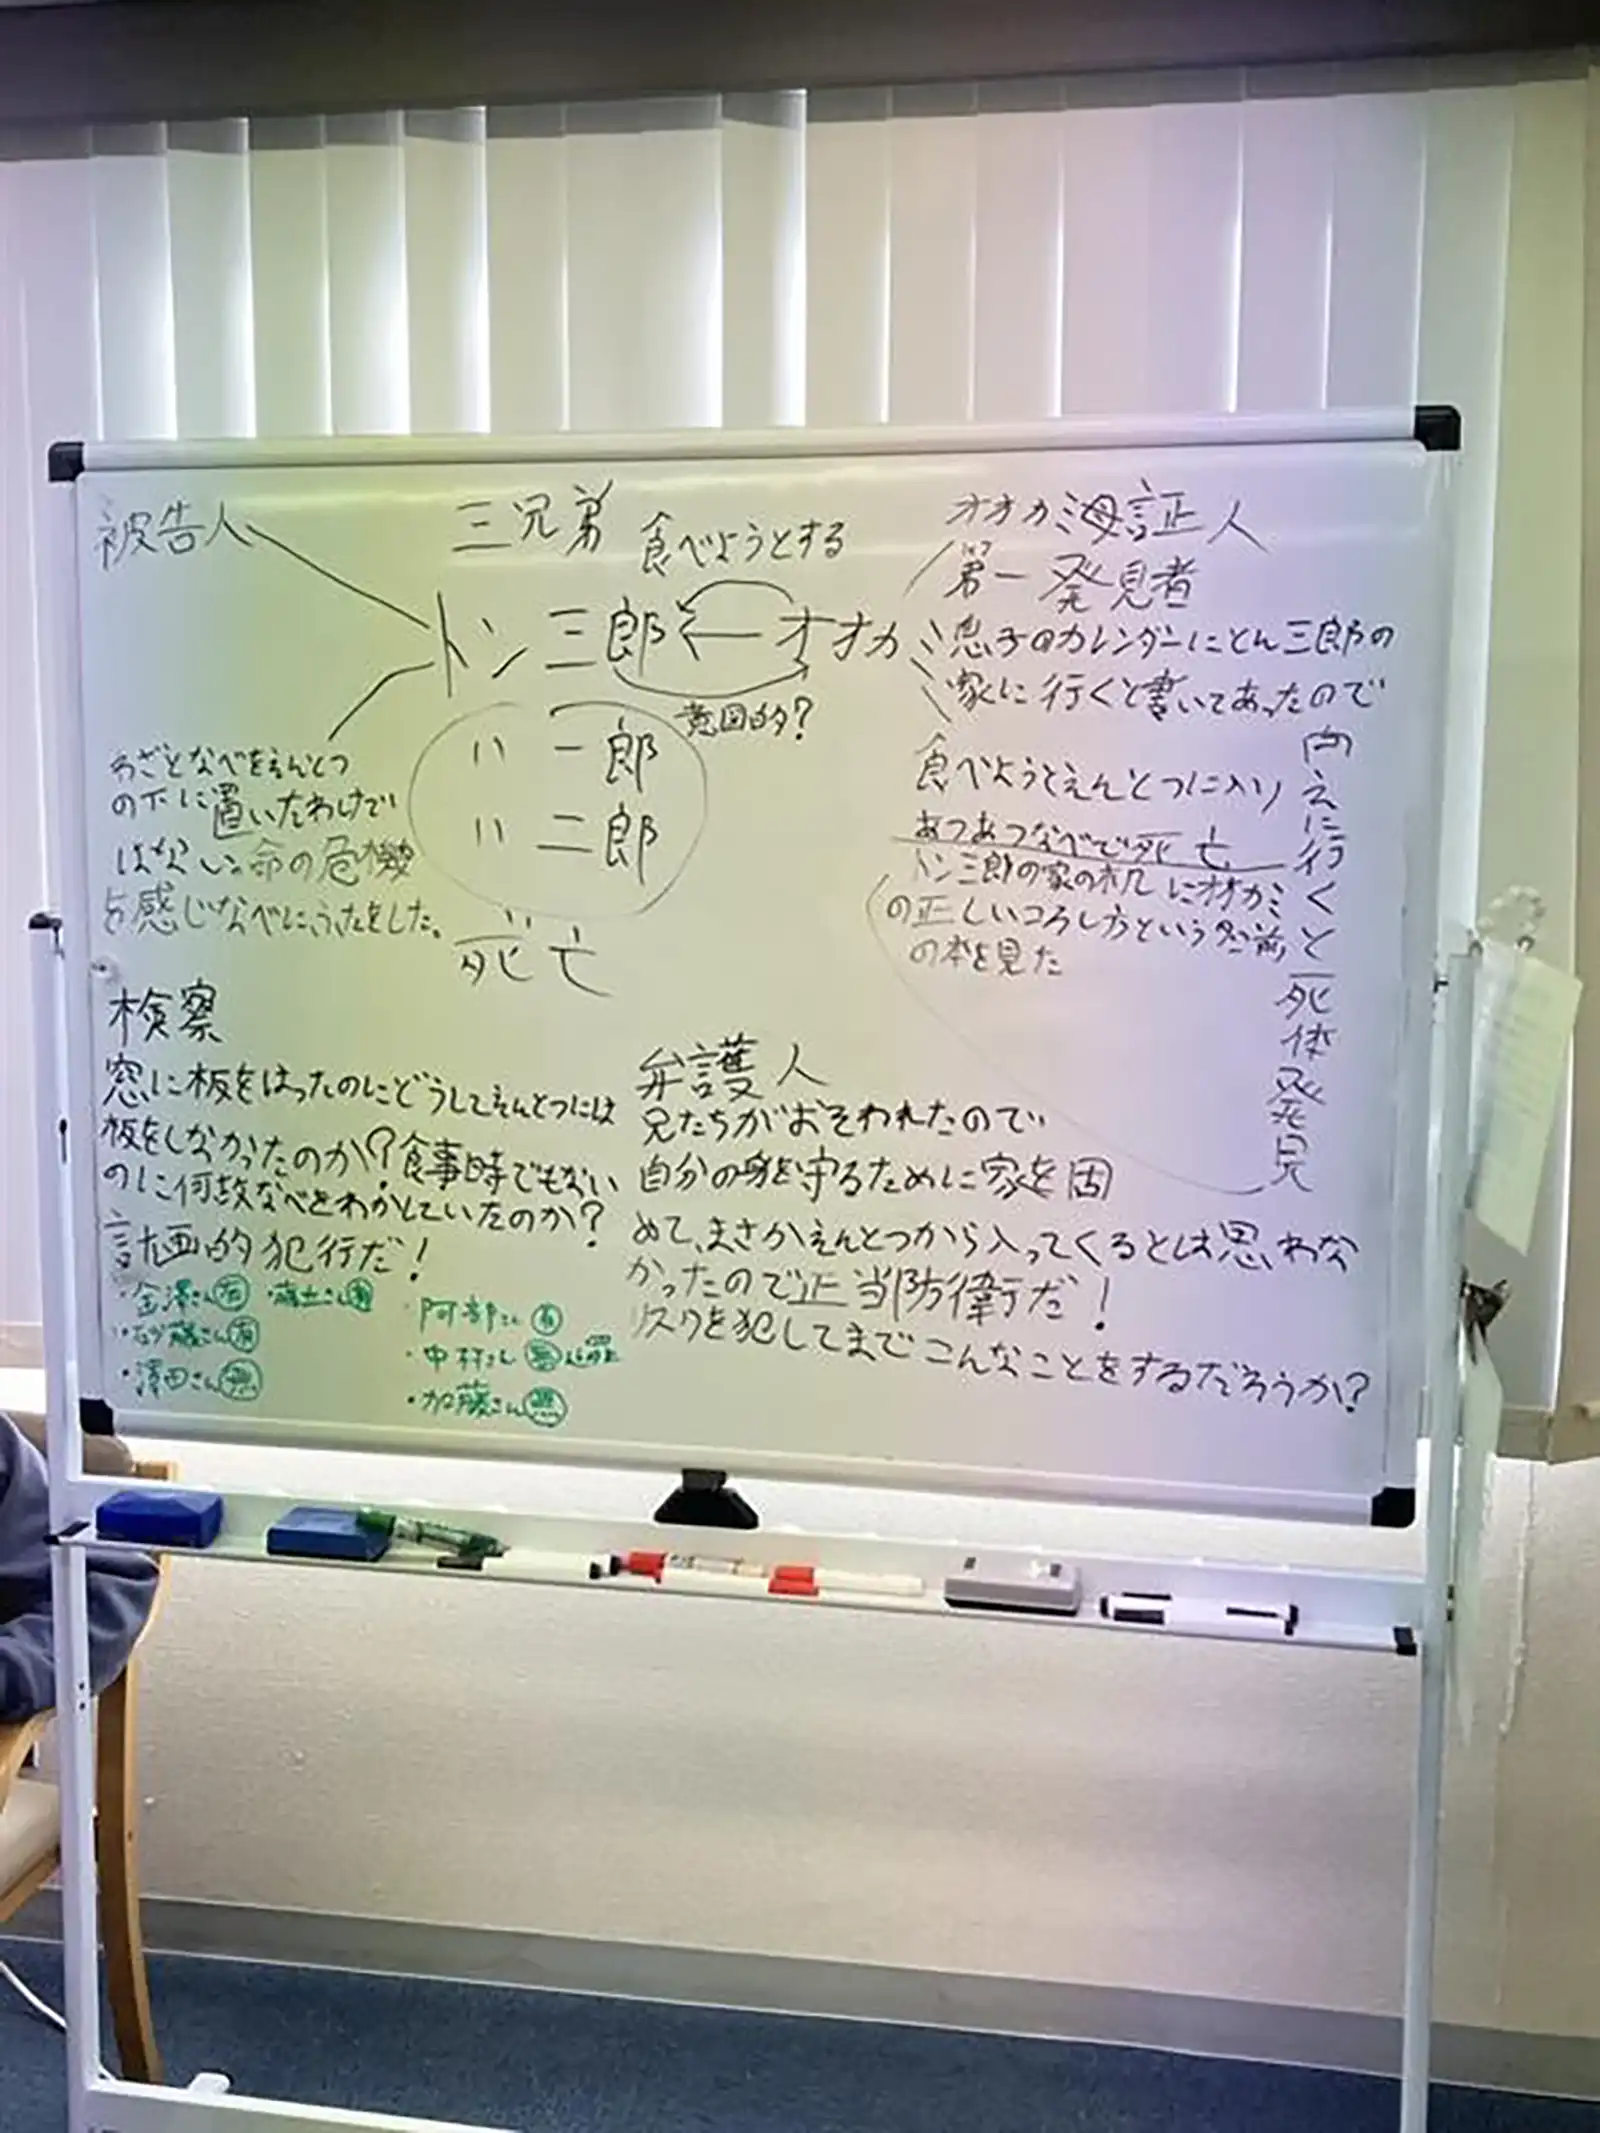 被告人
三兄弟
食べようとする
トン三郎
オオカミ
意図的?
〃一郎
〃二郎
死亡
わざとなべをえんとつ
の下に置いたわけで
はない。命の危機
を感じなべにふたをした。
オオカミ母証人
第一発見者
息子のカレンダーにとん三郎の
家に行くと書いてあったので
向えに行くと死体発見
食べようとえんとつに入り
あつあつなべで死亡
トン三郎の家の机にオオカミ
の正しいコろし方という名前
の本を見た
検察
窓に板をはったのにどうしてえんとつには
板をしなかったのか?食事時でもない
のに何故なべをわかしていたのか?
計画的犯行だ!
・金澤さん有
・佐藤さん有
・澤田さん無
・阿部さん有
・中村さん無
・加藤さん無
弁護人
兄たちがおそわれたので
自分の身を守るために家を固
めて、まさかえんとつから入ってくるとは思わな
かったので正当防衛だ!
リスクを犯してまでこんなことをするだろうか?